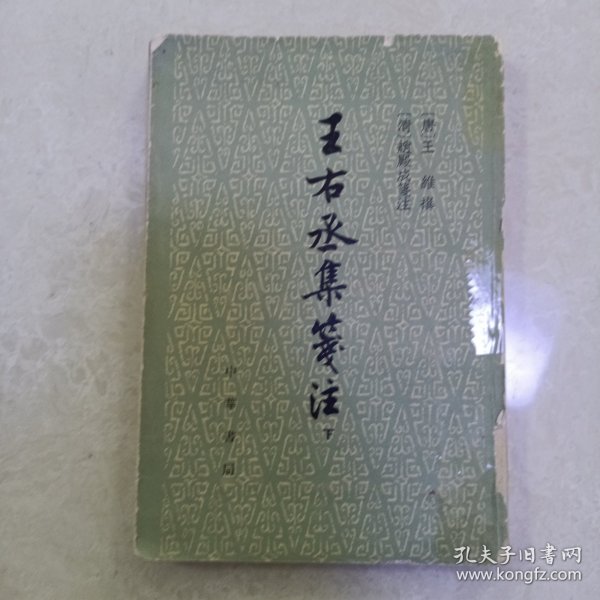 [唐]王維撰
[清]趙殿成箋注
王右丞集箋注 下
中華書局
孔夫子旧书网
www.kongfz.com